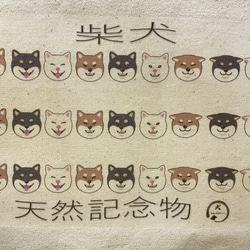 柴犬
天然記念物